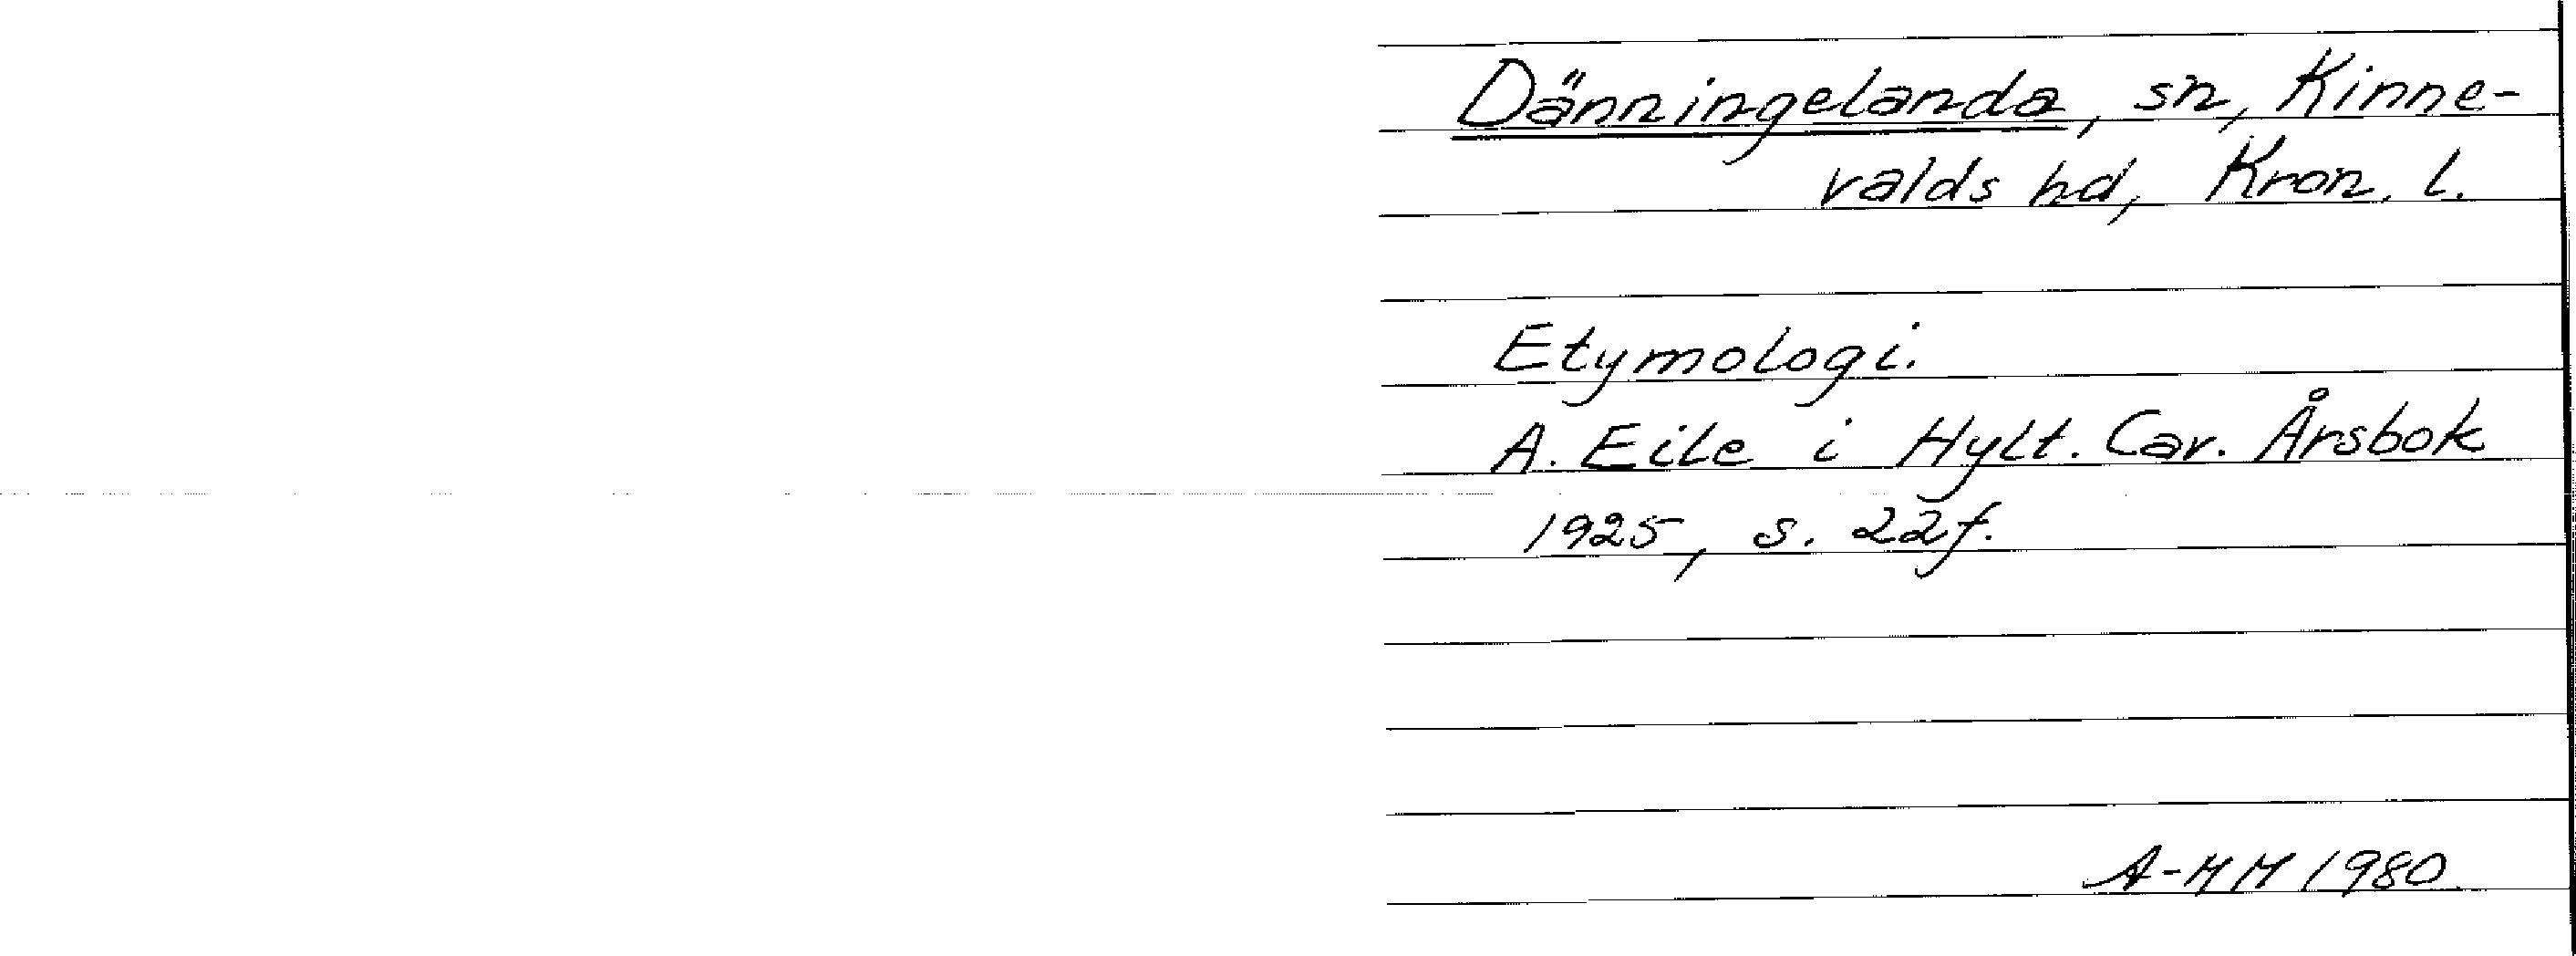 Dänningelanda, sn, Kinne-
valds hd, Kron. l.
Etymologi.
A. Eile i Hylt. Cav. Årsbok
1925, s. 22f.
A-MM 1980